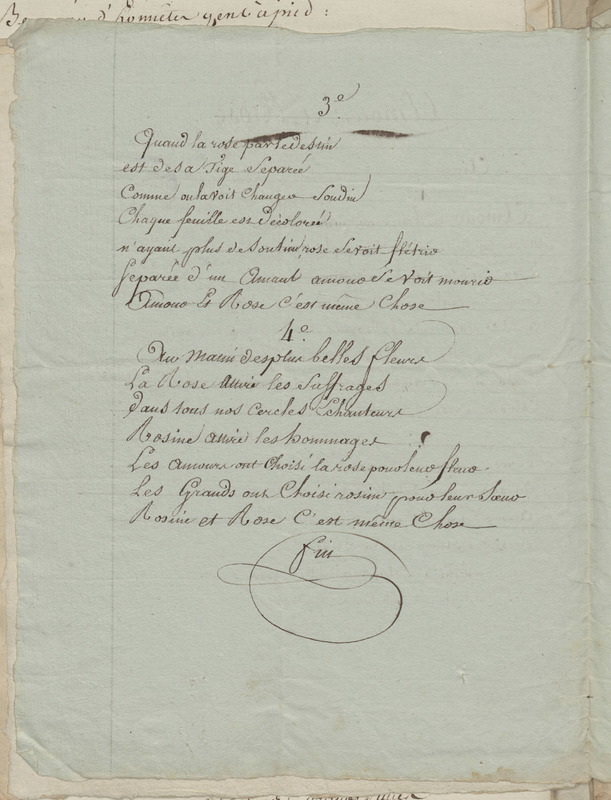 d'honnêtes gent à pied :
3e
Quand la rose par le destin
est de sa Tige Separée
Comme on la voit Changer Soudin
Chaque feuille est Décolorée
n'ayant plus de soutien, rose se voit flétrir
Separée d'un Amant amour se voit mourir
Amour Et Rose C'est même Chose
4e
Au Matin des plus belles fleurs
La Rose attire les Suffrages
Dans tous nos Cercles Enchanteurs
Rosine attire les hommages
Les amours ont Choisi la rose pour leur fleur
Les Grands ont Choisi rosine pour leur Sœur
Rosine et Rose C'est même Chose
fin